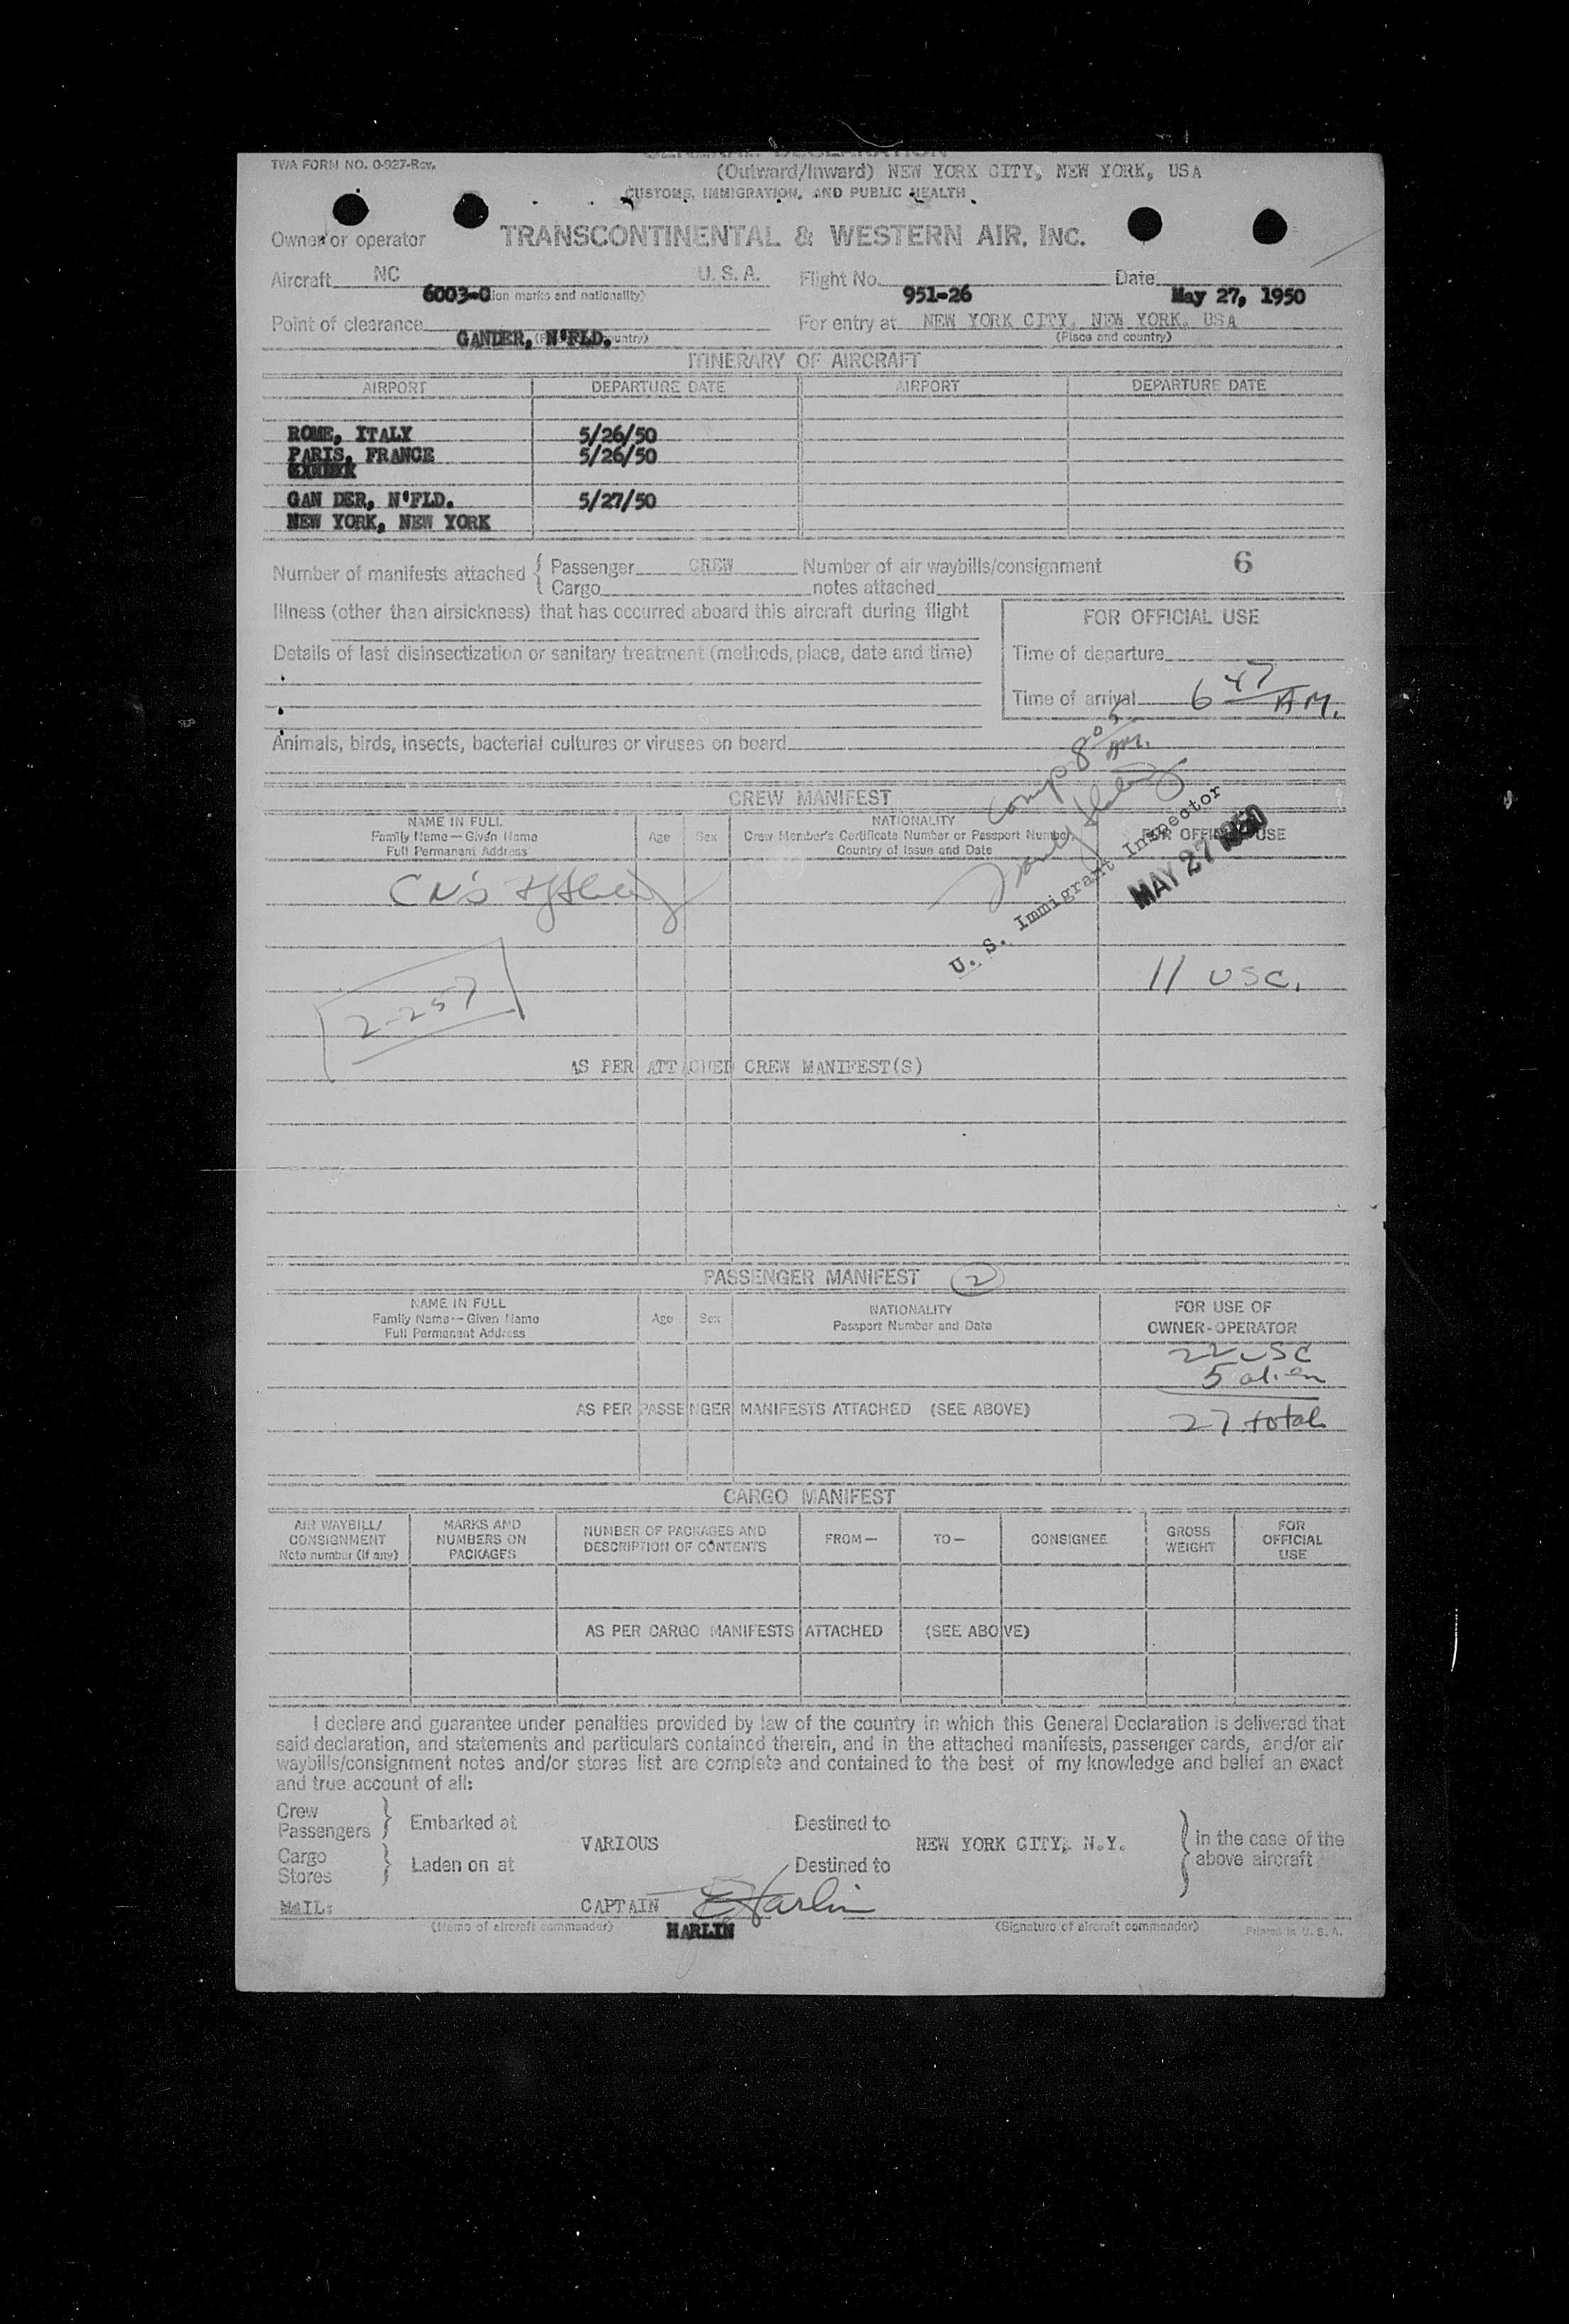 TWA FORM NO. O-927-Rev.
GENERAL DECLARATION
(Outward/Inward) NEW YORK CITY, NEW YORK, USA
CUSTOMS, IMMIGRATION, AND PUBLIC HEALTH
Owner or operator TRANSCONTINENTAL & WESTERN AIR, INC.
Aircraft NC U.S.A. Flight No. Date
6003-C ion marks and nationality) 951-26 May 27, 1950
Point of clearance For entry at NEW YORK CITY, NEW YORK, USA
GANDER, N'FLD. untry) (Place and country)
ITINERARY OF AIRCRAFT
AIRPORT DEPARTURE DATE AIRPORT DEPARTURE DATE
ROME, ITALY 5/26/50
PARIS, FRANCE 5/26/50
GAN DER, N'FLD. 5/27/50
NEW YORK, NEW YORK
Number of manifests attached { Passenger CREW Number of air waybills/consignment 6
Cargo notes attached
Illness (other than airsickness) that has occurred aboard this aircraft during flight
FOR OFFICIAL USE
Details of last disinsectization or sanitary treatment (methods, place, date and time)
Time of departure
Time of arrival 6 47 A.M.
Animals, birds, insects, bacterial cultures or viruses on board
Comp 8 05 AM.
CREW MANIFEST
NAME IN FULL
Family Name — Given Name
Full Permanent Address
Age Sex
NATIONALITY
Crew Member's Certificate Number or Passport Number
Country of Issue and Date
FOR OFFICIAL USE
U. S. Immigrant Inspector
MAY 27 1950
11 USC.
2-257
AS PER ATTACHED CREW MANIFEST(S)
PASSENGER MANIFEST 2
NAME IN FULL
Family Name — Given Name
Full Permanent Address
Age Sex
NATIONALITY
Passport Number and Date
FOR USE OF
OWNER-OPERATOR
22 USC
5 alien
AS PER PASSENGER MANIFESTS ATTACHED (SEE ABOVE) 27 total
CARGO MANIFEST
AIR WAYBILL/
CONSIGNMENT
Note number (if any)
MARKS AND
NUMBERS ON
PACKAGES
NUMBER OF PACKAGES AND
DESCRIPTION OF CONTENTS
FROM—
TO—
CONSIGNEE
GROSS
WEIGHT
FOR
OFFICIAL
USE
AS PER CARGO MANIFESTS ATTACHED (SEE ABOVE)
I declare and guarantee under penalties provided by law of the country in which this General Declaration is delivered that
said declaration, and statements and particulars contained therein, and in the attached manifests, passenger cards, and/or air
waybills/consignment notes and/or stores list are complete and contained to the best of my knowledge and belief an exact
and true account of all:
Crew
Passengers } Embarked at VARIOUS Destined to NEW YORK CITY, N.Y.
Cargo
Stores } Laden on at Destined to
} in the case of the
above aircraft
MAIL: CAPTAIN E Harlin
(Name of aircraft commander) HARLIN (Signature of aircraft commander) Printed in U. S. A.